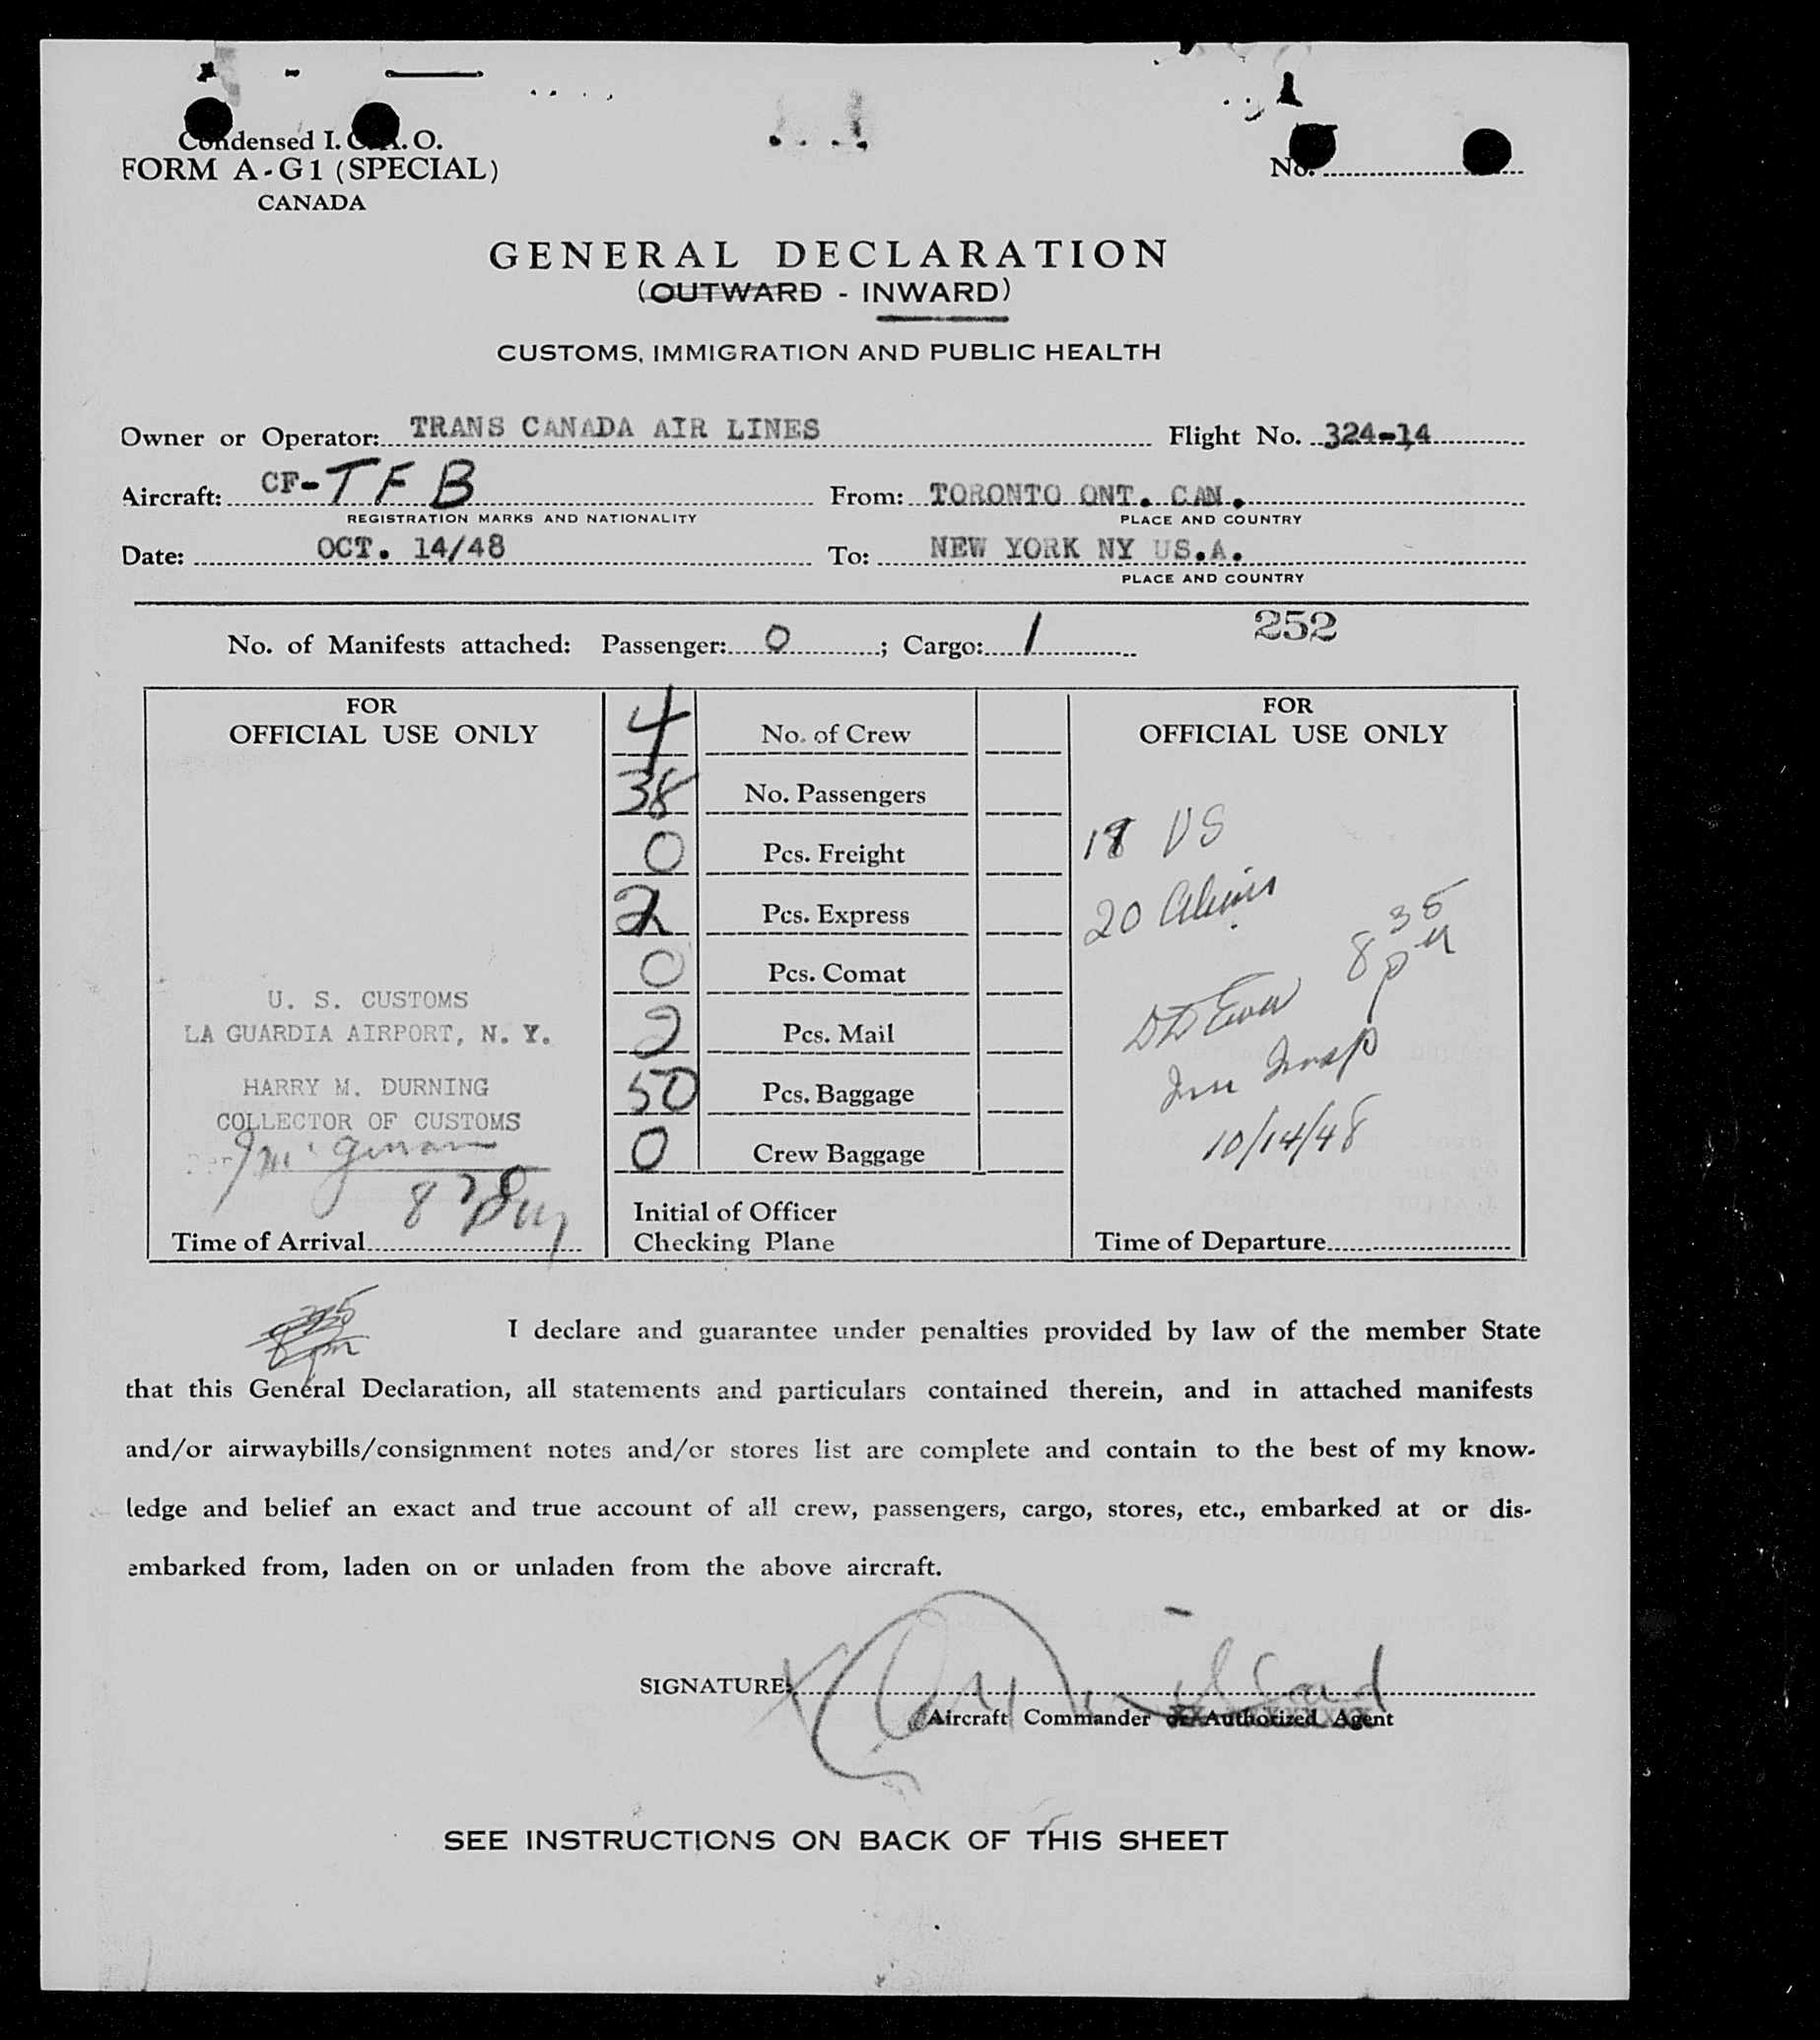 Condensed I. C. A. O.
FORM A-G1 (SPECIAL)
CANADA
No.
GENERAL DECLARATION
(OUTWARD - INWARD)
CUSTOMS, IMMIGRATION AND PUBLIC HEALTH
Owner or Operator: TRANS CANADA AIR LINES Flight No. 324-14
Aircraft: CF-TFB From: TORONTO ONT. CAN.
REGISTRATION MARKS AND NATIONALITY PLACE AND COUNTRY
Date: OCT. 14/48 To: NEW YORK NY US.A.
PLACE AND COUNTRY
No. of Manifests attached: Passenger: 0; Cargo: 1 252
FOR
OFFICIAL USE ONLY
U. S. CUSTOMS
LA GUARDIA AIRPORT, N. Y.
HARRY M. DURNING
COLLECTOR OF CUSTOMS
Time of Arrival
4 No. of Crew
38 No. Passengers
0 Pcs. Freight
2 Pcs. Express
0 Pcs. Comat
2 Pcs. Mail
50 Pcs. Baggage
0 Crew Baggage
Initial of Officer
Checking Plane
FOR
OFFICIAL USE ONLY
18 US
20 Aliens
8 35 pm
Imm Insp
10/14/48
Time of Departure
I declare and guarantee under penalties provided by law of the member State
that this General Declaration, all statements and particulars contained therein, and in attached manifests
and/or airwaybills/consignment notes and/or stores list are complete and contain to the best of my know-
ledge and belief an exact and true account of all crew, passengers, cargo, stores, etc., embarked at or dis-
embarked from, laden on or unladen from the above aircraft.
SIGNATURE:
Aircraft Commander or Authorized Agent
SEE INSTRUCTIONS ON BACK OF THIS SHEET